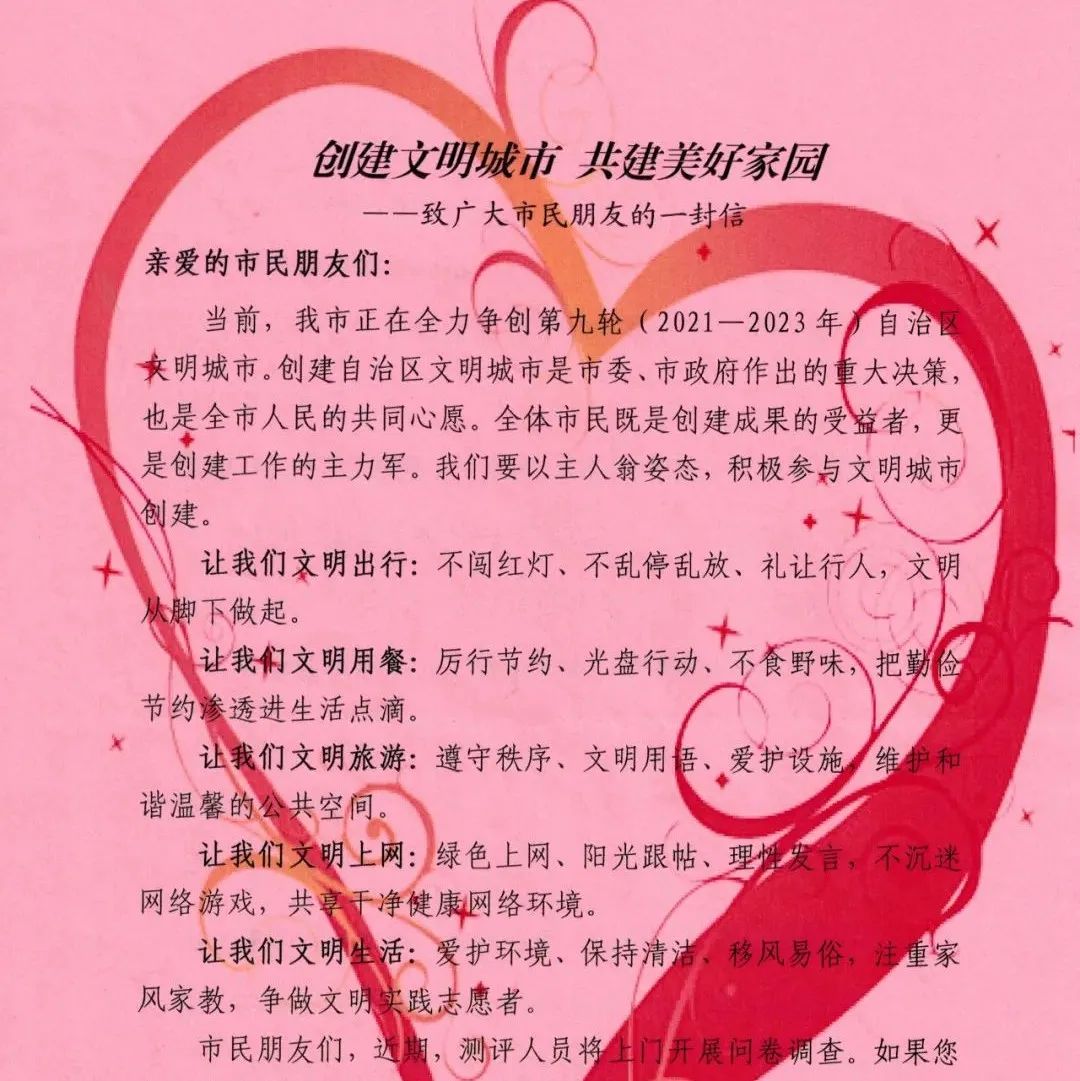 创建文明城市 共建美好家园
——致广大市民朋友的一封信
亲爱的市民朋友们：
当前，我市正在全力争创第九轮（2021—2023年）自治区
文明城市。创建自治区文明城市是市委、市政府作出的重大决策，
也是全市人民的共同心愿。全体市民既是创建成果的受益者，更
是创建工作的主力军。我们要以主人翁姿态，积极参与文明城市
创建。
让我们文明出行：不闯红灯、不乱停乱放、礼让行人，文明
从脚下做起。
让我们文明用餐：厉行节约、光盘行动、不食野味，把勤俭
节约渗透进生活点滴。
让我们文明旅游：遵守秩序、文明用语、爱护设施，维护和
谐温馨的公共空间。
让我们文明上网：绿色上网、阳光跟帖、理性发言，不沉迷
网络游戏，共享干净健康网络环境。
让我们文明生活：爱护环境、保持清洁、移风易俗，注重家
风家教，争做文明实践志愿者。
市民朋友们，近期，测评人员将上门开展问卷调查。如果您